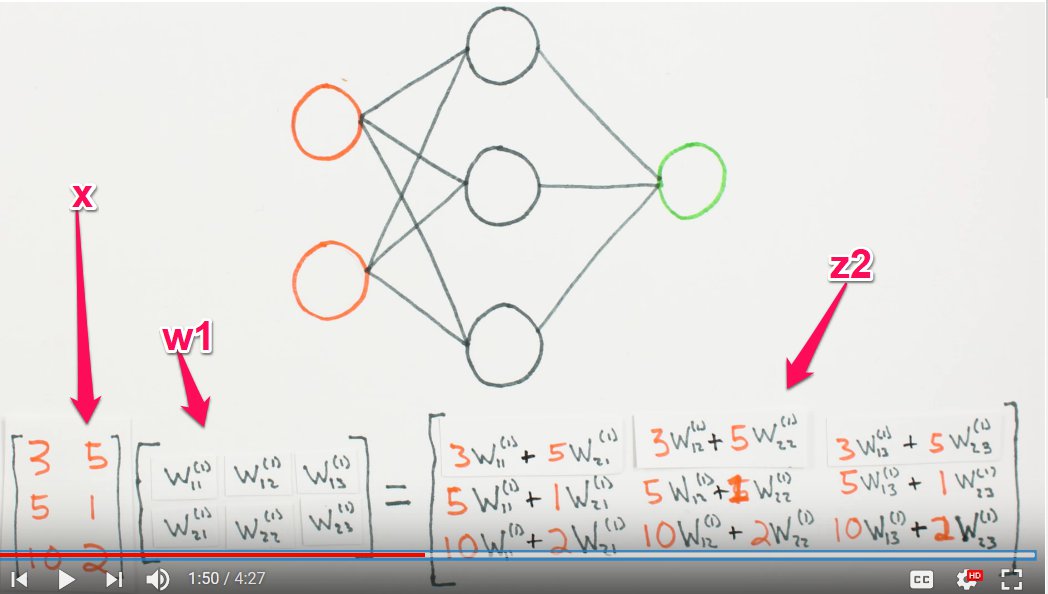 x
z2
w1
3 5
5 1
10 2
W₁₁⁽¹⁾ W₁₂⁽¹⁾ W₁₃⁽¹⁾
W₂₁⁽¹⁾ W₂₂⁽¹⁾ W₂₃⁽¹⁾
=
3W₁₁⁽¹⁾ + 5W₂₁⁽¹⁾ 3W₁₂⁽¹⁾ + 5W₂₂⁽¹⁾ 3W₁₃⁽¹⁾ + 5W₂₃⁽¹⁾
5W₁₁⁽¹⁾ + 1W₂₁⁽¹⁾ 5W₁₂⁽¹⁾ + 1W₂₂⁽¹⁾ 5W₁₃⁽¹⁾ + 1W₂₃⁽¹⁾
10W₁₁⁽¹⁾ + 2W₂₁⁽¹⁾ 10W₁₂⁽¹⁾ + 2W₂₂⁽¹⁾ 10W₁₃⁽¹⁾ + 2W₂₃⁽¹⁾
1:50 / 4:27 CC HD